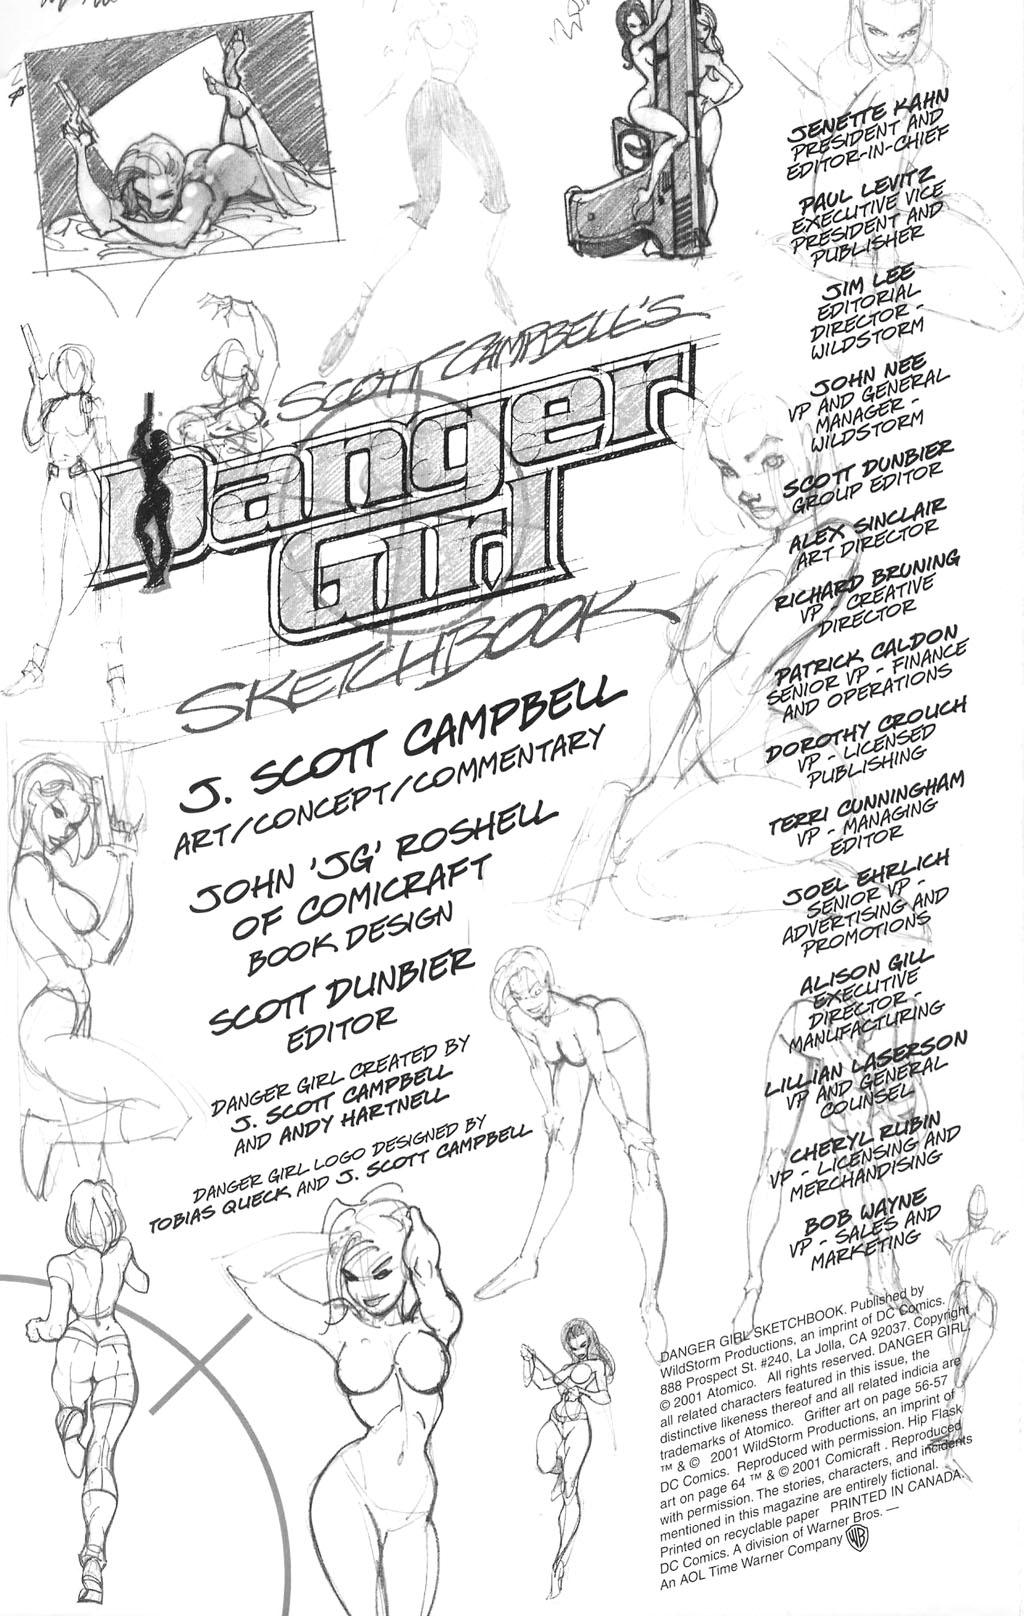 SCOTT CAMPBELL'S
Danger
Girl
SKETCHBOOK
J. SCOTT CAMPBELL
ART/CONCEPT/COMMENTARY
JOHN 'JG' ROSHELL
OF COMICRAFT
BOOK DESIGN
SCOTT DUNBIER
EDITOR
DANGER GIRL CREATED BY
J. SCOTT CAMPBELL
AND ANDY HARTNELL
DANGER GIRL LOGO DESIGNED BY
TOBIAS QUECK AND J. SCOTT CAMPBELL
JENETTE KAHN
PRESIDENT AND
EDITOR-IN-CHIEF
PAUL LEVITZ
EXECUTIVE VICE
PRESIDENT AND
PUBLISHER
JIM LEE
EDITORIAL
DIRECTOR -
WILDSTORM
JOHN NEE
VP AND GENERAL
MANAGER -
WILDSTORM
SCOTT DUNBIER
GROUP EDITOR
ALEX SINCLAIR
ART DIRECTOR
RICHARD BRUNING
VP - CREATIVE
DIRECTOR
PATRICK CALDON
SENIOR VP - FINANCE
AND OPERATIONS
DOROTHY CROUCH
VP - LICENSED
PUBLISHING
TERRI CUNNINGHAM
VP - MANAGING
EDITOR
JOEL EHRLICH
SENIOR VP -
ADVERTISING AND
PROMOTIONS
ALISON GILL
EXECUTIVE
DIRECTOR -
MANUFACTURING
LILLIAN LASERSON
VP AND GENERAL
COUNSEL
CHERYL RUBIN
VP - LICENSING AND
MERCHANDISING
BOB WAYNE
VP - SALES AND
MARKETING
DANGER GIRL SKETCHBOOK. Published by
WildStorm Productions, an imprint of DC Comics.
888 Prospect St. #240, La Jolla, CA 92037. Copyright
© 2001 Atomico. All rights reserved. DANGER GIRL,
all related characters featured in this issue, the
distinctive likeness thereof and all related indicia are
trademarks of Atomico. Grifter art on page 56-57
™ & © 2001 WildStorm Productions, an imprint of
DC Comics. Reproduced with permission. Hip Flask
art on page 64 ™ & © 2001 Comicraft. Reproduced
with permission. The stories, characters, and incidents
mentioned in this magazine are entirely fictional.
Printed on recyclable paper PRINTED IN CANADA.
DC Comics. A division of Warner Bros. —
An AOL Time Warner Company WB